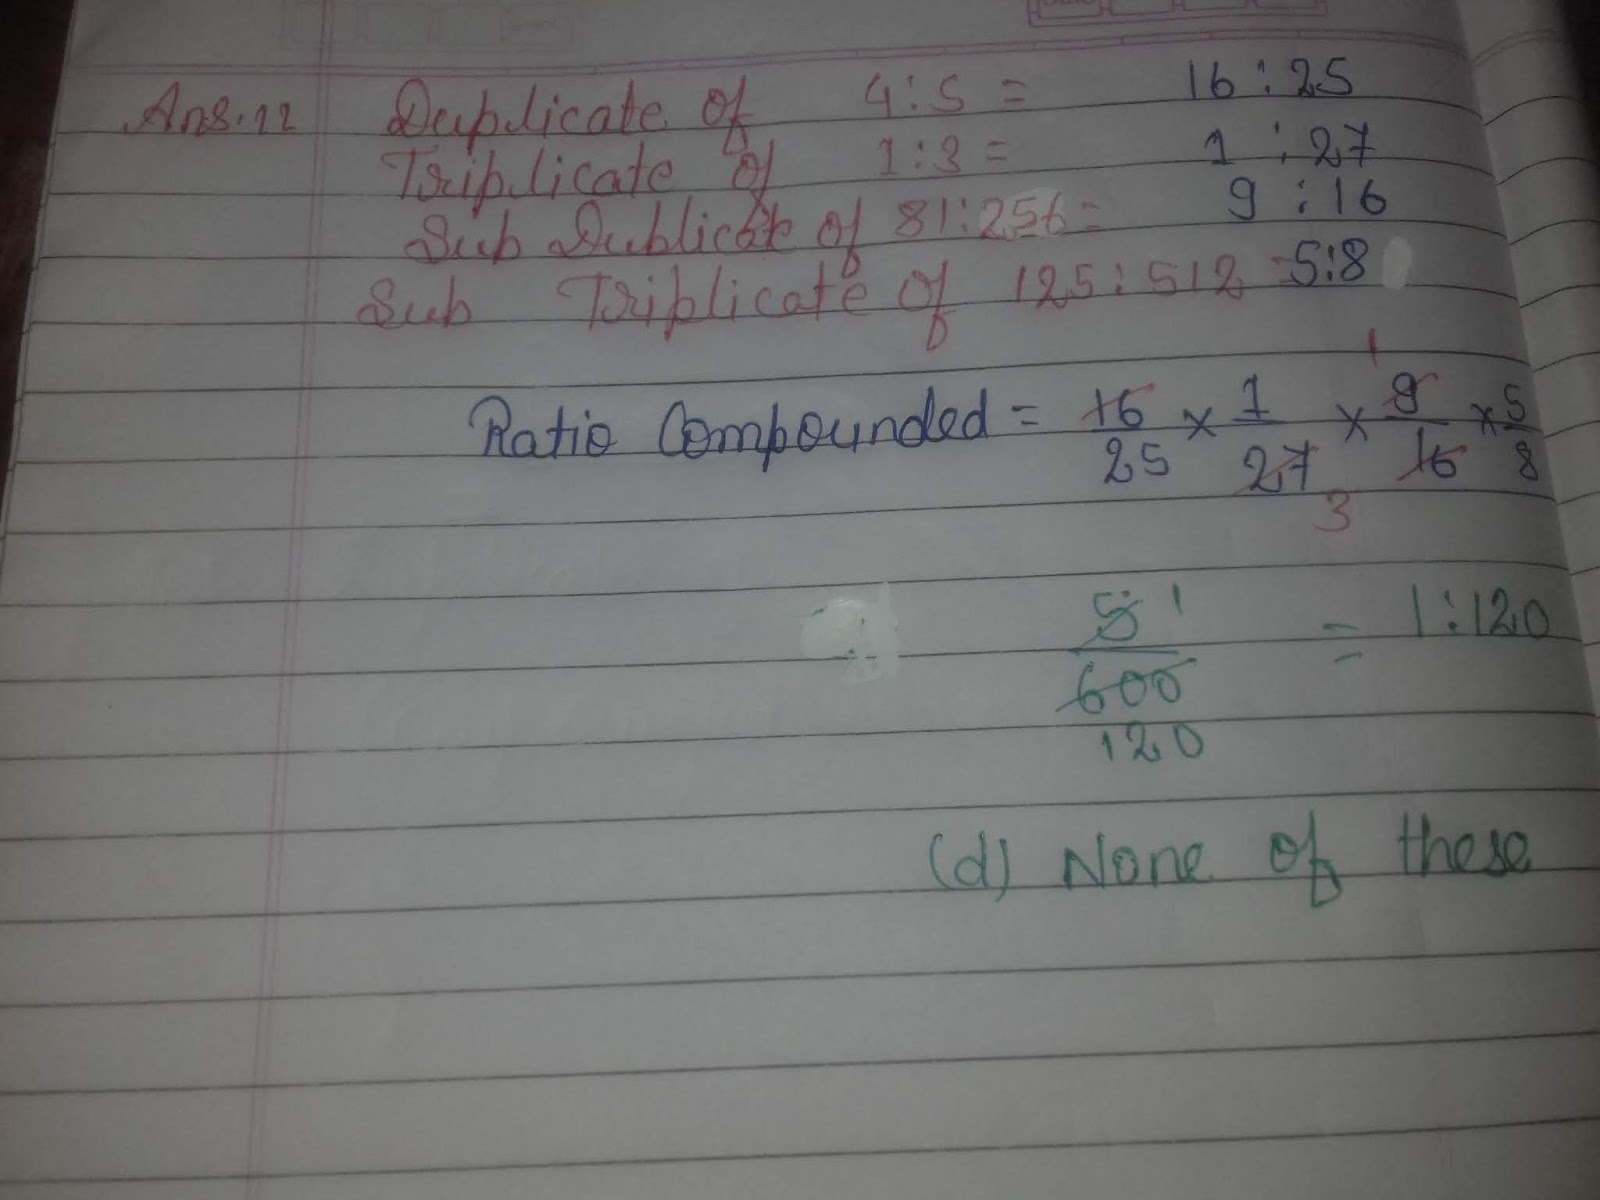 Ans.12 Duplicate of 4:5 = 16:25
Triplicate of 1:3 = 1:27
Sub Dublicate of 81:256= 9:16
Sub Triplicate of 125:512 =5:8
1
Ratio Compounded = 16/25 × 1/27 × 9/16 × 5/8
3
5/600 1 = 1:120
120
(d) None of these